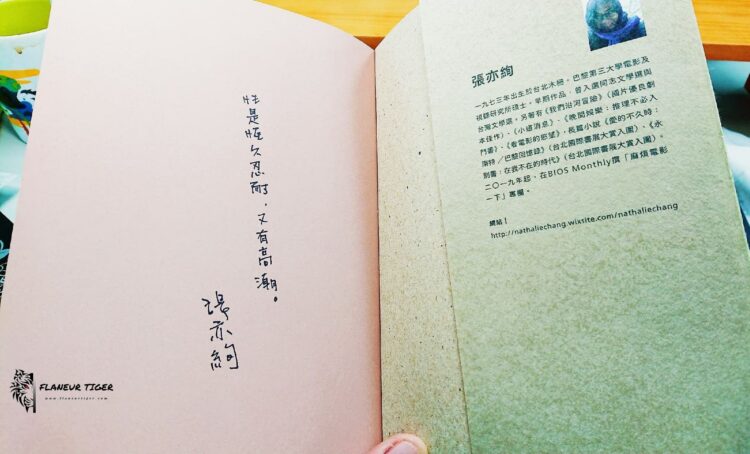 性是恆久忍耐，又有高潮。
張亦絢
張亦絢
一九七三年出生於台北木柵，巴黎第三大學電影及
視聽研究所碩士。早期作品，曾入選同志文學選與
台灣文學選。另著有《我們沿河冒險》（國片優良劇
本佳作）、《小道消息》、《晚間娛樂：推理不必入
門書》、《看電影的慾望》，長篇小說《愛的不久時：
南特／巴黎回憶錄》（台北國際書展大賞入圍）、《永
別書：在我不在的時代》（台北國際書展大賞入圍）。
二〇一九年起，在BIOS Monthly撰「麻煩電影
一下」專欄。
網站｜
http://nathaliechang.wixsite.com/nathaliechang
FLANEUR TIGER
www.flaneurtiger.com